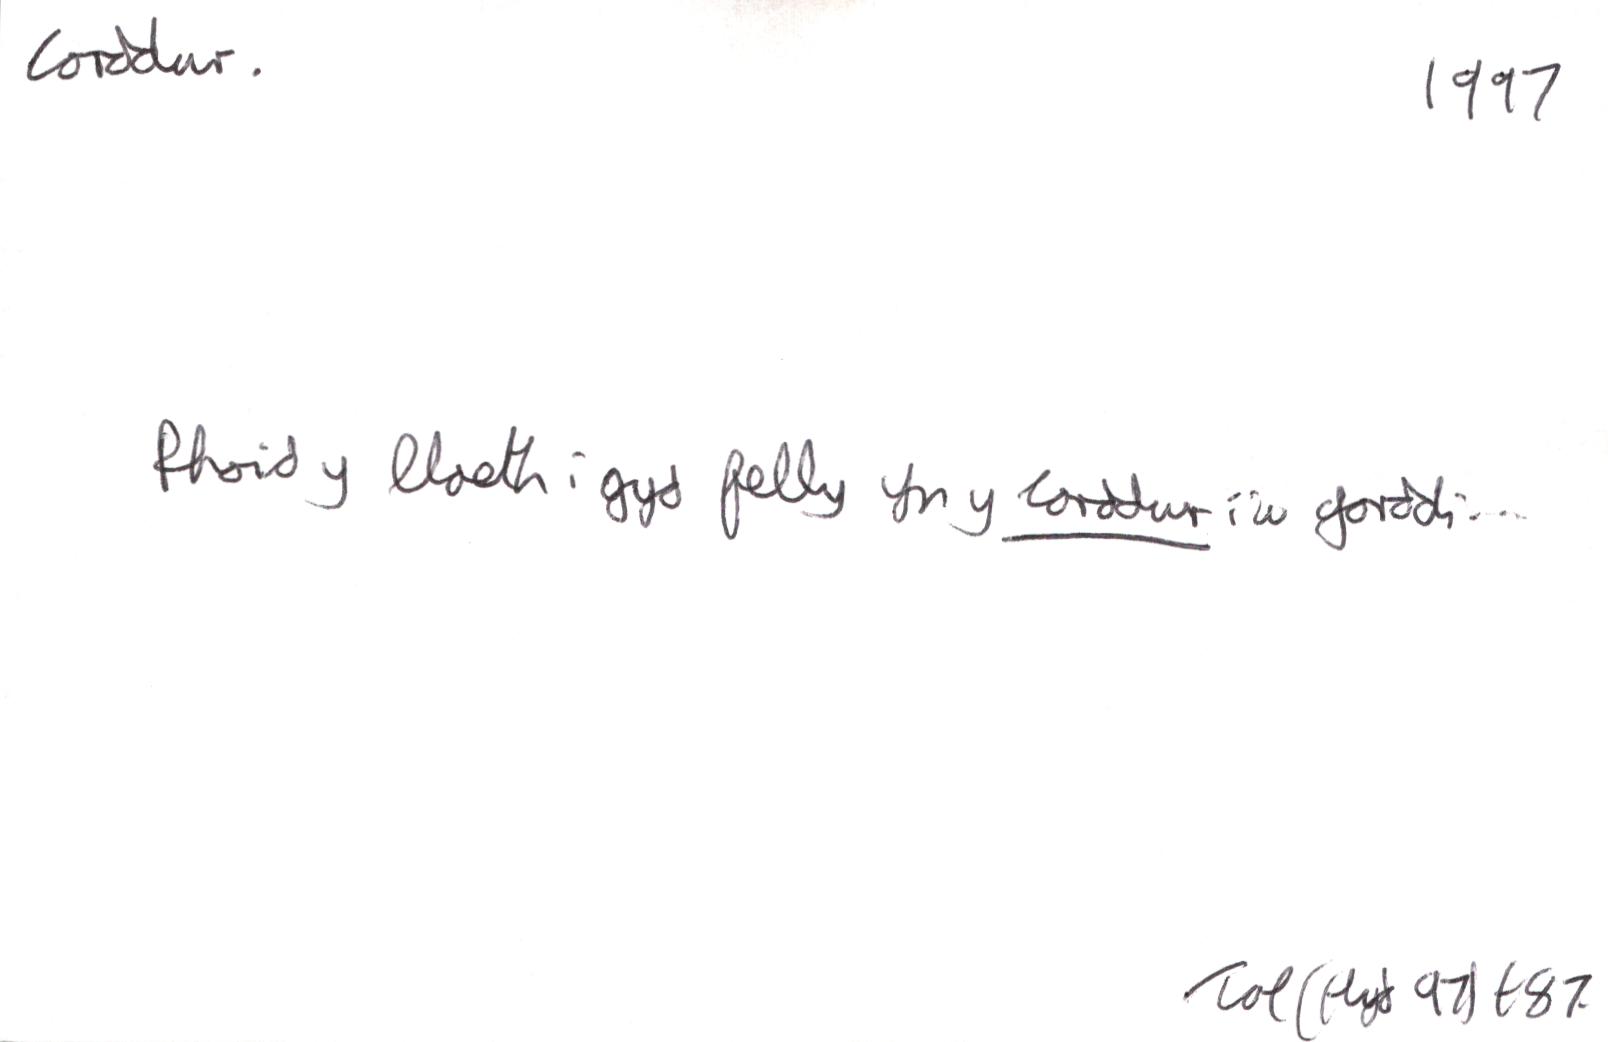 Corddwr.
1997
Rhoid y llaeth i gyd felly yn y corddwr i'w gorddi...
(Hyd 97) t87.